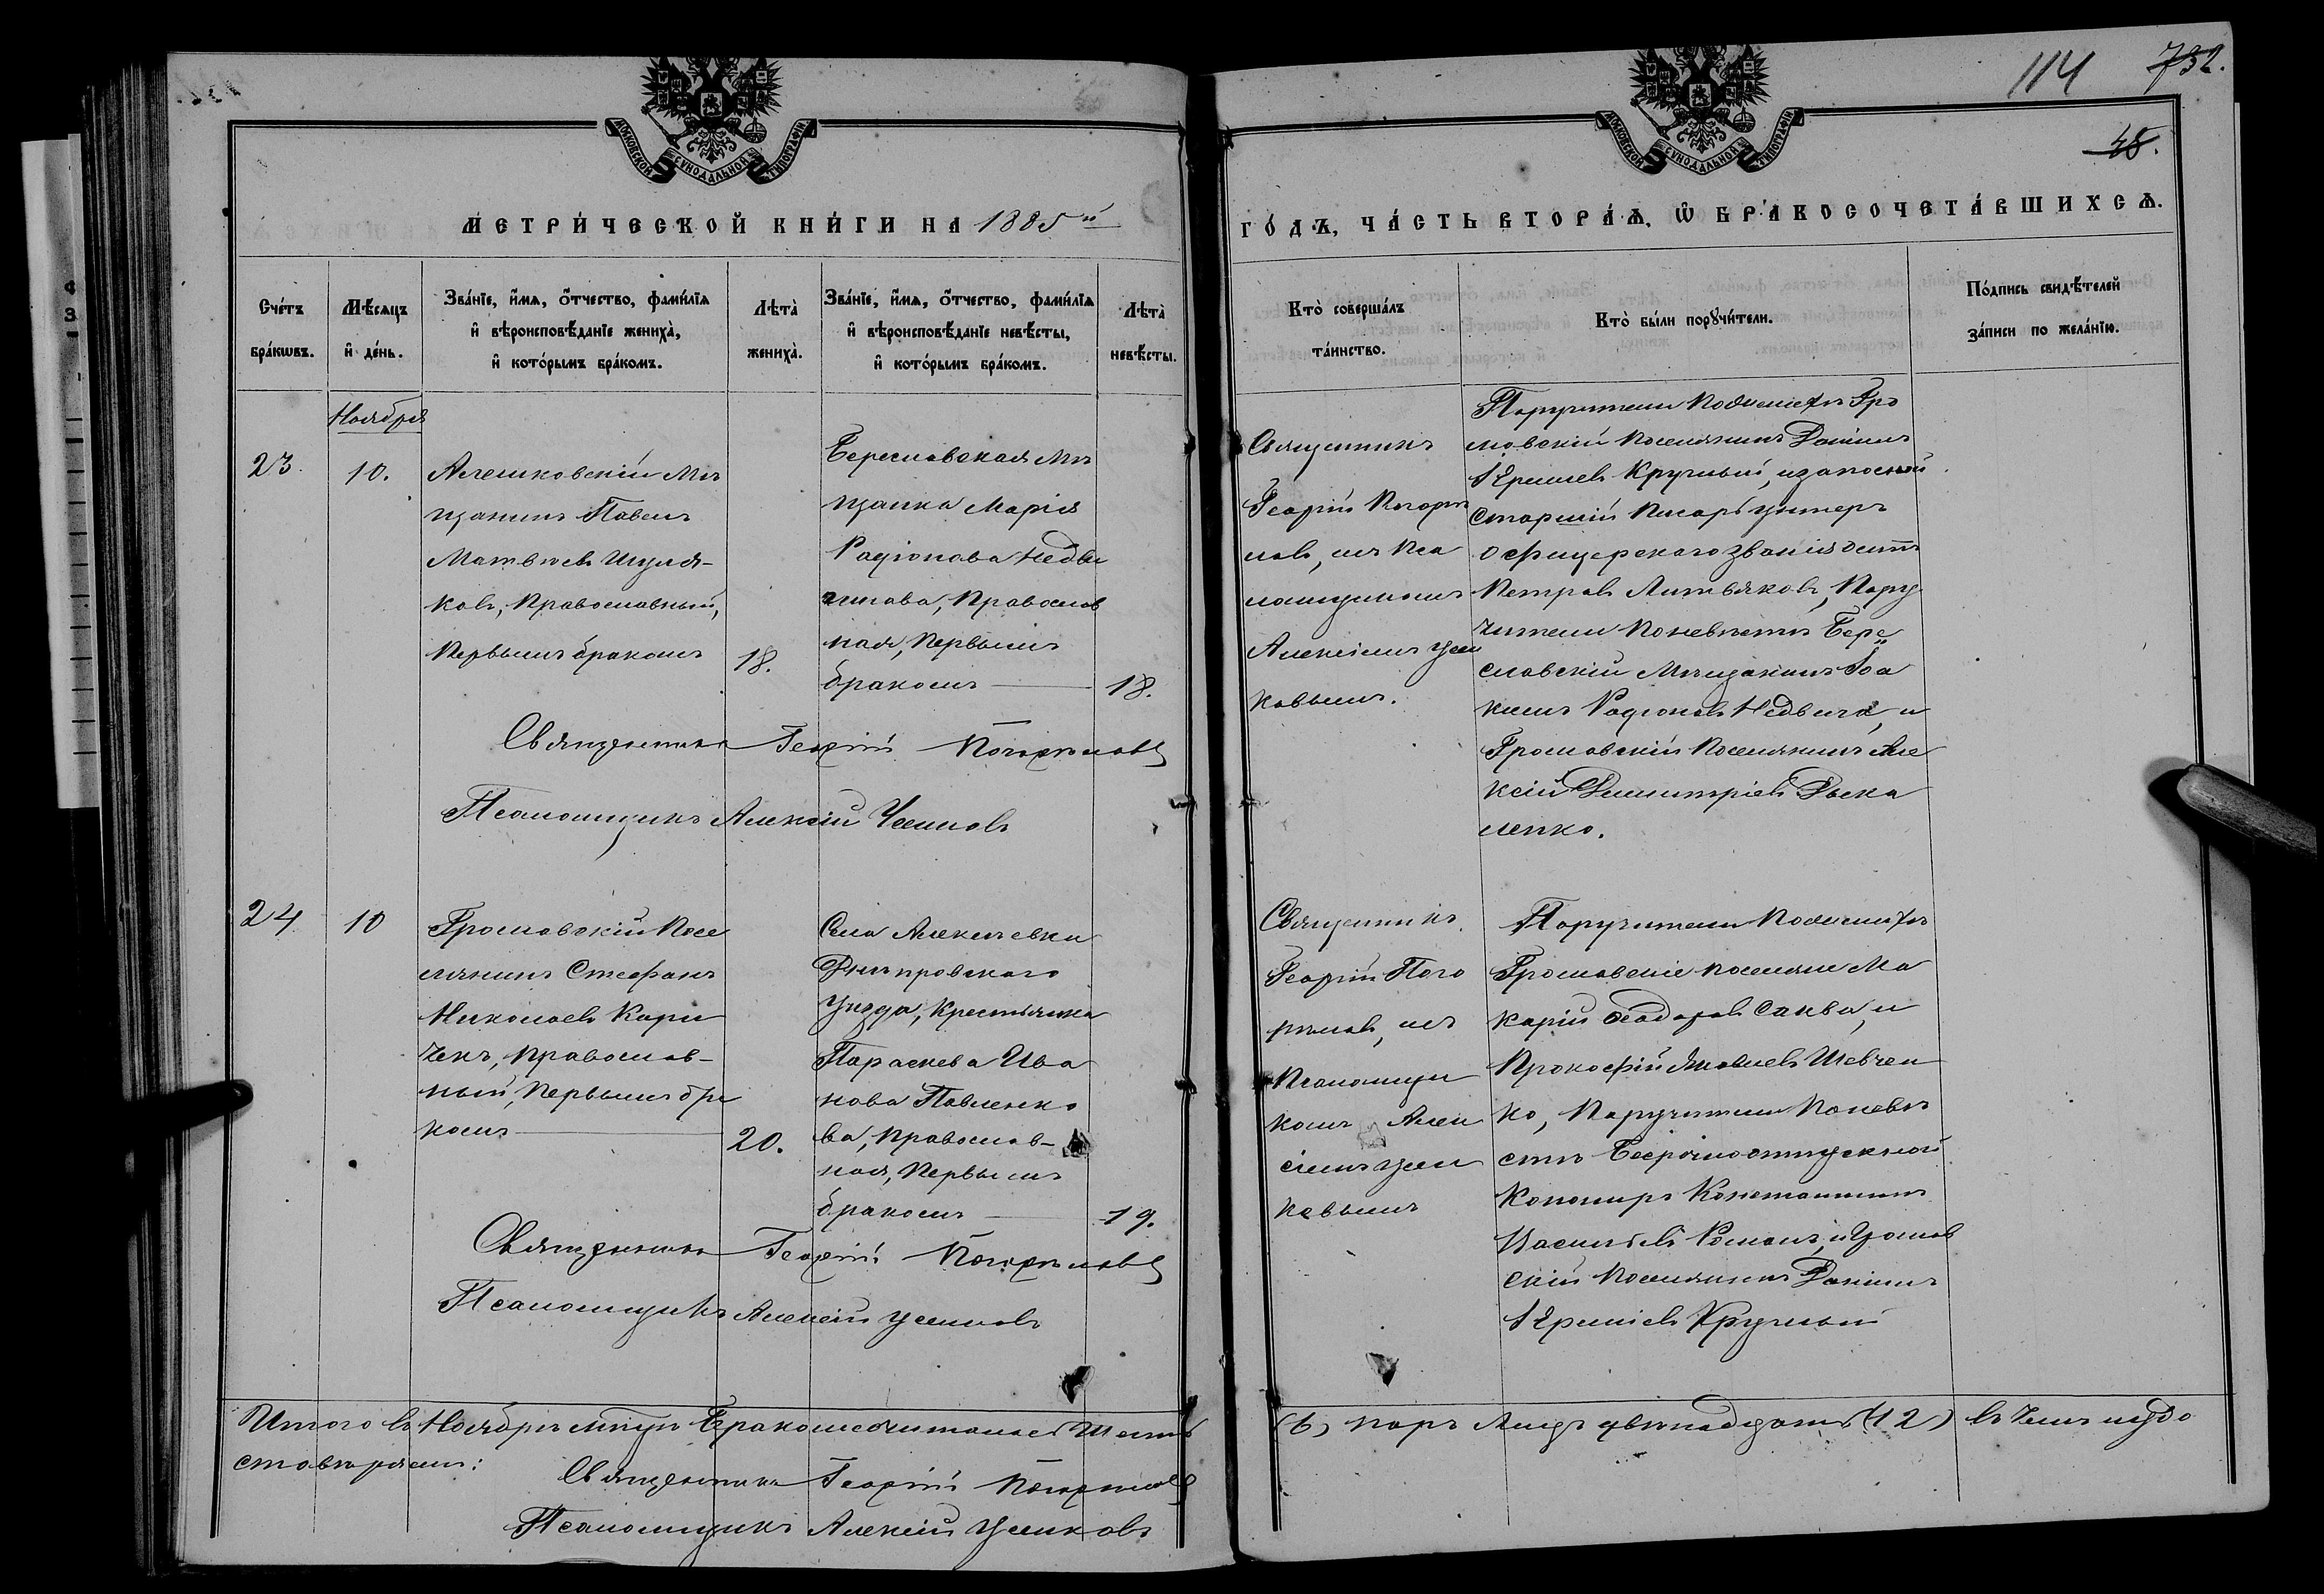 114 732.
48.
МОСКОВСКОЙ СѴНОДАЛЬНОЙ ТИПОГРАФІИ
МОСКОВСКОЙ СѴНОДАЛЬНОЙ ТИПОГРАФІИ
МЕТРИ́ЧЕСКОЙ КНИ́ГИ НА 1885й
ГО́ДЪ, ЧА́СТЬ ВТОРА́Ѧ, Ѡ҆ БРАКОСОЧЕТА́ВШИХСѦ.
Сче́тъ
бра́кѡвъ.
Мѣ́сяцъ
и҆ де́нь.
Зва́нїе, и҆́мѧ, ѻ҆́тчество, фами́лїѧ
и҆ вѣроисповѣ́данїе жениха̀,
и҆ кото́рымъ бра́комъ.
Лѣта̀
жениха̀.
Зва́нїе, и҆́мѧ, ѻ҆́тчество, фами́лїѧ
и҆ вѣроисповѣ́данїе невѣ́сты,
и҆ кото́рымъ бра́комъ.
Лѣта̀
невѣ́сты.
Кто̀ соверша́лъ
та́инство.
Кто̀ бы́ли порꙋчи́тели.
По́дпись свидѣ́телей
за́писи по жела́нїю.
Ноября
23.
10.
Алешковскій Мѣ
щанинъ Павелъ
Матвѣевъ Шуля-
ковъ, Православный,
Первымъ бракомъ
18.
Береславская Мѣ
щанка Марія
Радіонова Недви
гина, Православ
ная, Первымъ
бракомъ
18.
Священникъ
Георгій Погорѣ
ловъ, съ Пса
ломщикомъ
Алексіемъ Усен
ковымъ.
Поручители По женихѣ Гро
мовскій Поселянинъ Даніилъ
Ермиевъ Кручный, и запасный
старшій Писарь Унтеръ
офицерскаго званія
Петровъ Литвяковъ, Пору
чители По невѣстѣ Бере
славскій Мѣщанинъ Іоа
кимъ Радіоновъ Недвига, и
Громовскій Поселянинъ Але
ксій Димитріевъ Дыка
ленко.
Священникъ Георгій Погорѣловъ
Псаломщикъ Алексій Усенковъ
24
10
Громовскій Посе
лянинъ Стефанъ
Николаевъ Кари
ченъ, Православ-
ный, Первымъ бра
комъ
20.
Села Алексѣевки
Днѣпровскаго
Уѣзда, Крестьянка
Параскева Ива
нова Павленко
ва, Православ-
ная, Первымъ
бракомъ
19.
Священникъ
Георгій Пого
рѣловъ, съ
Псаломщи
комъ Алек
сіемъ Усен
ковымъ
Поручители По женихѣ
Громовскіе поселяне Ма
карій Ѳеодоровъ Саква, и
Прокофій Яковлевъ Шевчен
ко, Поручители По невѣ
стѣ Безсрочноотпускной
Канониръ Константинъ
Васильевъ Романъ, и Громов
скій Поселянинъ Даніилъ
Ермиевъ Кручный
Священникъ Георгій Погорѣловъ
Псаломщикъ Алексій Усенковъ
Итого въ Ноябрѣ мѣсяцѣ Бракомъ сочиталось Шесть
(6) паръ Лицъ двѣнадцать (12) въ чемъ и удо
стовѣряемъ:
Священникъ Георгій Погорѣловъ
Псаломщикъ Алексій Усенковъ